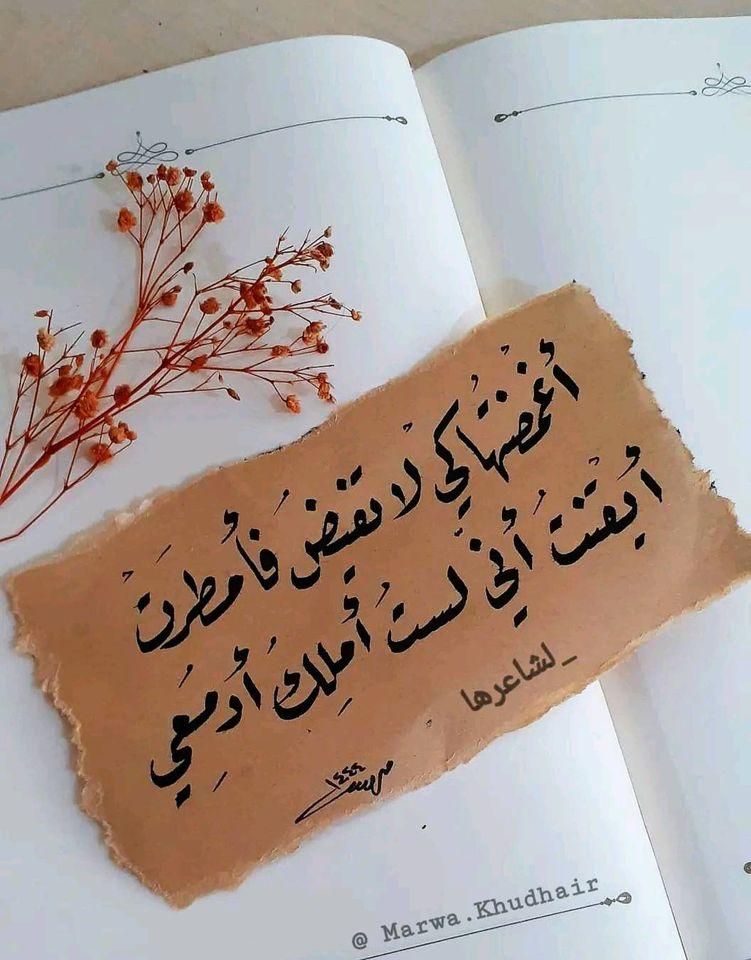 أغْمَضْتُها كي لا تفيضَ فأمطرَتْ
أيقنْتُ أنّي لستُ أملِكُ أدمُعِي
_لشاعرها
١٤٤٤
@ Marwa.Khudhair